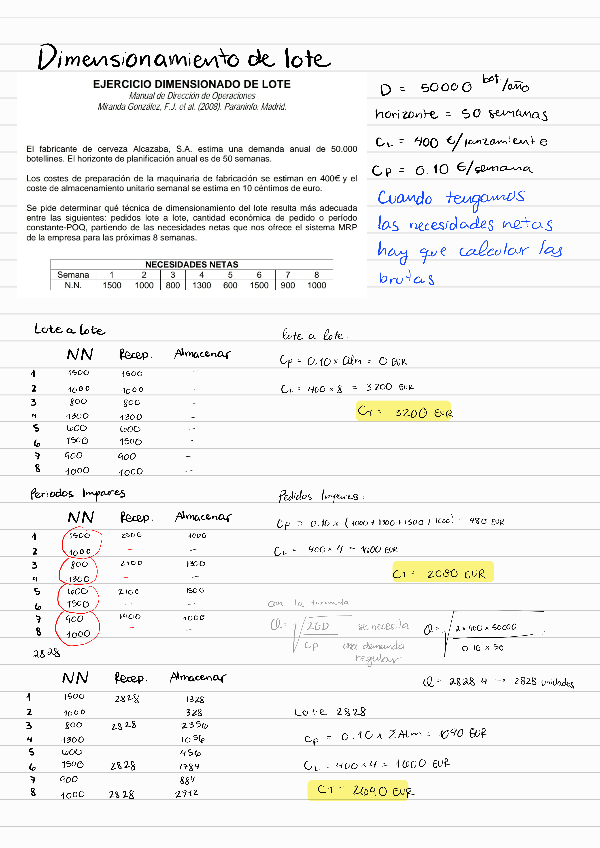 Dimensionamiento de lote
EJERCICIO DIMENSIONADO DE LOTE
Manual de Dirección de Operaciones
Miranda González, F.J. et al. (2008). Paraninfo. Madrid.
El fabricante de cerveza Alcazaba, S.A. estima una demanda anual de 50.000
botellines. El horizonte de planificación anual es de 50 semanas.
Los costes de preparación de la maquinaria de fabricación se estiman en 400€ y el
coste de almacenamiento unitario semanal se estima en 10 céntimos de euro.
Se pide determinar qué técnica de dimensionamiento del lote resulta más adecuada
entre las siguientes: pedidos lote a lote, cantidad económica de pedido o período
constante-POQ, partiendo de las necesidades netas que nos ofrece el sistema MRP
de la empresa para las próximas 8 semanas.
NECESIDADES NETAS
Semana 1 2 3 4 5 6 7 8
N.N. 1500 1000 800 1300 600 1500 900 1000
D = 50000 bot/año
horizonte = 50 semanas
CL = 400 €/lanzamiento
Cp = 0.10 €/semana
Cuando tengamos
las necesidades netas
hay que calcular las
brutas
Lote a lote
NN Recep. Almacenar
1 1500 1500 -
2 1000 1000 --
3 800 800 -
4 1300 1300 --
5 600 600 --
6 1500 1500 --
7 900 900 -
8 1000 1000 --
lote a lote.
Cp = 0.10 x Alm = 0 EUR
CL = 400 x 8 = 3200 EUR
CT = 3200 EUR
Periodos Impares
NN Recep. Almacenar
1 1500 2500 1000
2 1000 - -
3 800 2100 1300
4 1300 - -
5 600 2100 1500
6 1500 -- --
7 900 1900 1000
8 1000 - -
Pedidos Impares.
Cp = 0.10 x (1000 + 1300 + 1500 + 1000) = 480 EUR
CL = 400 x 4 = 1600 EUR
CT = 2080 EUR
con la formula
Q = √ 2GD / Cp
se necesita
una demanda
regular
Q = √ 2 x 400 x 50000 / 0.10 x 50
Q = 2828.4 → 2828 unidades
2828
NN Recep. Almacenar
1 1500 2828 1328
2 1000 328
3 800 2828 2356
4 1300 1056
5 600 456
6 1500 2828 1784
7 900 884
8 1000 2828 2712
Lote 2828
Cp = 0.10 x Σ Alm = 1090 EUR
CL = 400 x 4 = 1600 EUR
CT = 2690 EUR